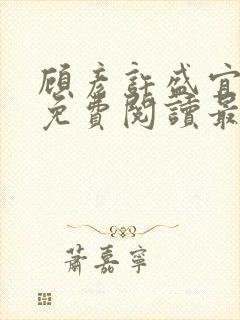 顧彥許盛宜
免費閱讀最
蕭嘉寧